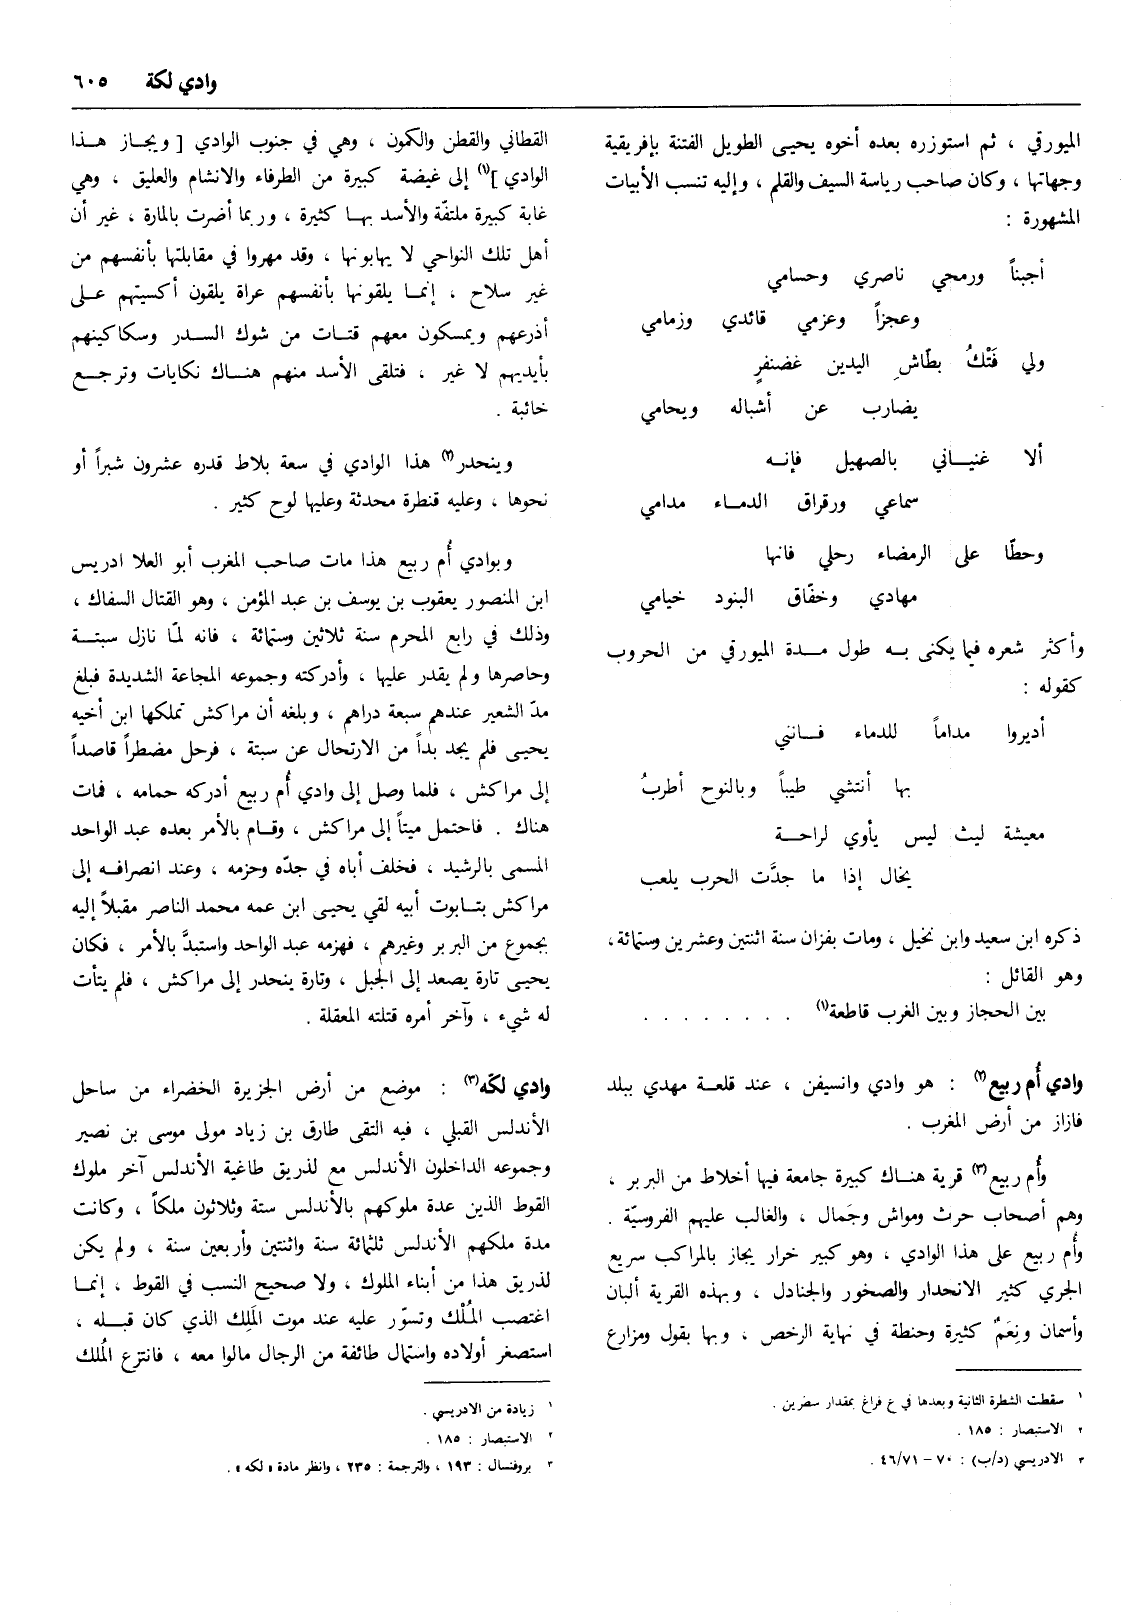 وادي لكة ٦٠٥
الميورقي ، ثم استوزره بعده أخوه يحيى الطويل الفتنة بإفريقية
وجهاتها ، وكان صاحب رياسة السيف والقلم ، وإليه تنسب الأبيات
المشهورة :
أجبناً ورمحي ناصري وحسامي
وعجزاً وعزمي قائدي وزمامي
ولي فَتْكُ بطّاشِ اليدين غضنفرٍ
يضارب عن أشباله ويحامي
ألا غنياني بالصهيل فإنه
سماعي ورقراق الدماء مدامي
وحطّا على الرمضاء رحلي فانها
مهادي وخفّاق البنود خيامي
وأكثر شعره فيما يكنى به طول مدة الميورقي من الحروب
كقوله :
أديروا مداماً للدماء فانني
بها أنتشي طيباً وبالنوح أطربُ
معيشة ليث ليس يأوي لراحة
يخال إذا ما جدَّت الحرب يلعب
ذكره ابن سعيد وابن نخيل ، ومات بفزان سنة اثنتين وعشرين وستمائة ،
وهو القائل :
بين الحجاز وبين الغرب قاطعة(١) . . . . . . . .
وادي أُم ربيع(٢) : هو وادي وانسيفن ، عند قلعة مهدي ببلد
فازاز من أرض المغرب .
وأُم ربيع(٣) قرية هناك كبيرة جامعة فيها أخلاط من البربر ،
وهم أصحاب حرث ومواش وجَمال ، والغالب عليهم الفروسيّة .
وأُم ربيع على هذا الوادي ، وهو كبير خرار يجاز بالمراكب سريع
الجري كثير الانحدار والصخور والجنادل ، وبهذه القرية ألبان
وأسمان ونِعَمٌ كثيرة وحنطة في نهاية الرخص ، وبها بقول ومزارع
١ سقطت الشطرة الثانية وبعدها في ع فراغ بمقدار سطرين .
٢ الاستبصار : ١٨٥ .
٣ الادريسي (د/ب) : ٧٠ - ٤٦/٧١ .
القطاني والقطن والكمون ، وهي في جنوب الوادي [ ويجاز هذا
الوادي ](١) إلى غيضة كبيرة من الطرفاء والانشام والعليق ، وهي
غابة كبيرة ملتفّة والأسد بها كثيرة ، وربما أضرت بالمارة ، غير أن
أهل تلك النواحي لا يهابونها ، وقد مهروا في مقابلتها بأنفسهم من
غير سلاح ، إنما يلقونها بأنفسهم عراة يلقون أكسيتهم على
أذرعهم ويمسكون معهم قتات من شوك السدر وسكاكينهم
بأيديهم لا غير ، فتلقى الأسد منهم هناك نكايات وترجع
خائبة .
وينحدر(٢) هذا الوادي في سعة بلاط قدره عشرون شبراً أو
نحوها ، وعليه قنطرة محدثة وعليها لوح كثير .
وبوادي أُم ربيع هذا مات صاحب المغرب أبو العلا ادريس
ابن المنصور يعقوب بن يوسف بن عبد المؤمن ، وهو القتال السفاك ،
وذلك في رابع المحرم سنة ثلاثين وستمائة ، فانه لمّا نازل سبتة
وحاصرها ولم يقدر عليها ، وأدركته وجموعه المجاعة الشديدة فبلغ
مدّ الشعير عندهم سبعة دراهم ، وبلغه أن مراكش تملكها ابن أخيه
يحيى فلم يجد بداً من الارتحال عن سبتة ، فرحل مضطراً قاصداً
إلى مراكش ، فلما وصل إلى وادي أُم ربيع أدركه حمامه ، فمات
هناك . فاحتمل ميتاً إلى مراكش ، وقام بالأمر بعده عبد الواحد
المسمى بالرشيد ، فخلف أباه في جدّه وحزمه ، وعند انصرافه إلى
مراكش بتابوت أبيه لقي يحيى ابن عمه محمد الناصر مقبلاً إليه
بجموع من البربر وغيرهم ، فهزمه عبد الواحد واستبدَّ بالأمر ، فكان
يحيى تارة يصعد إلى الجبل ، وتارة ينحدر إلى مراكش ، فلم يتأت
له شيء ، وآخر أمره قتلته المعقلة .
وادي لكّه(٣) : موضع من أرض الجزيرة الخضراء من ساحل
الأندلس القبلي ، فيه التقى طارق بن زياد مولى موسى بن نصير
وجموعه الداخلون الأندلس مع لذريق طاغية الأندلس آخر ملوك
القوط الذين عدة ملوكهم بالأندلس ستة وثلاثون ملكاً ، وكانت
مدة ملكهم الأندلس ثلثمائة سنة واثنتين وأربعين سنة ، ولم يكن
لذريق هذا من أبناء الملوك ، ولا صحيح النسب في القوط ، إنما
اغتصب المُلْك وتسوّر عليه عند موت المَلِك الذي كان قبله ،
استصغر أولاده واستمال طائفة من الرجال مالوا معه ، فانتزع المُلك
١ زيادة من الادريسي .
٢ الاستبصار : ١٨٥ .
٣ بروفنسال : ١٩٣ ، والترجمة : ٢٣٥ ، وانظر مادة « لكه » .